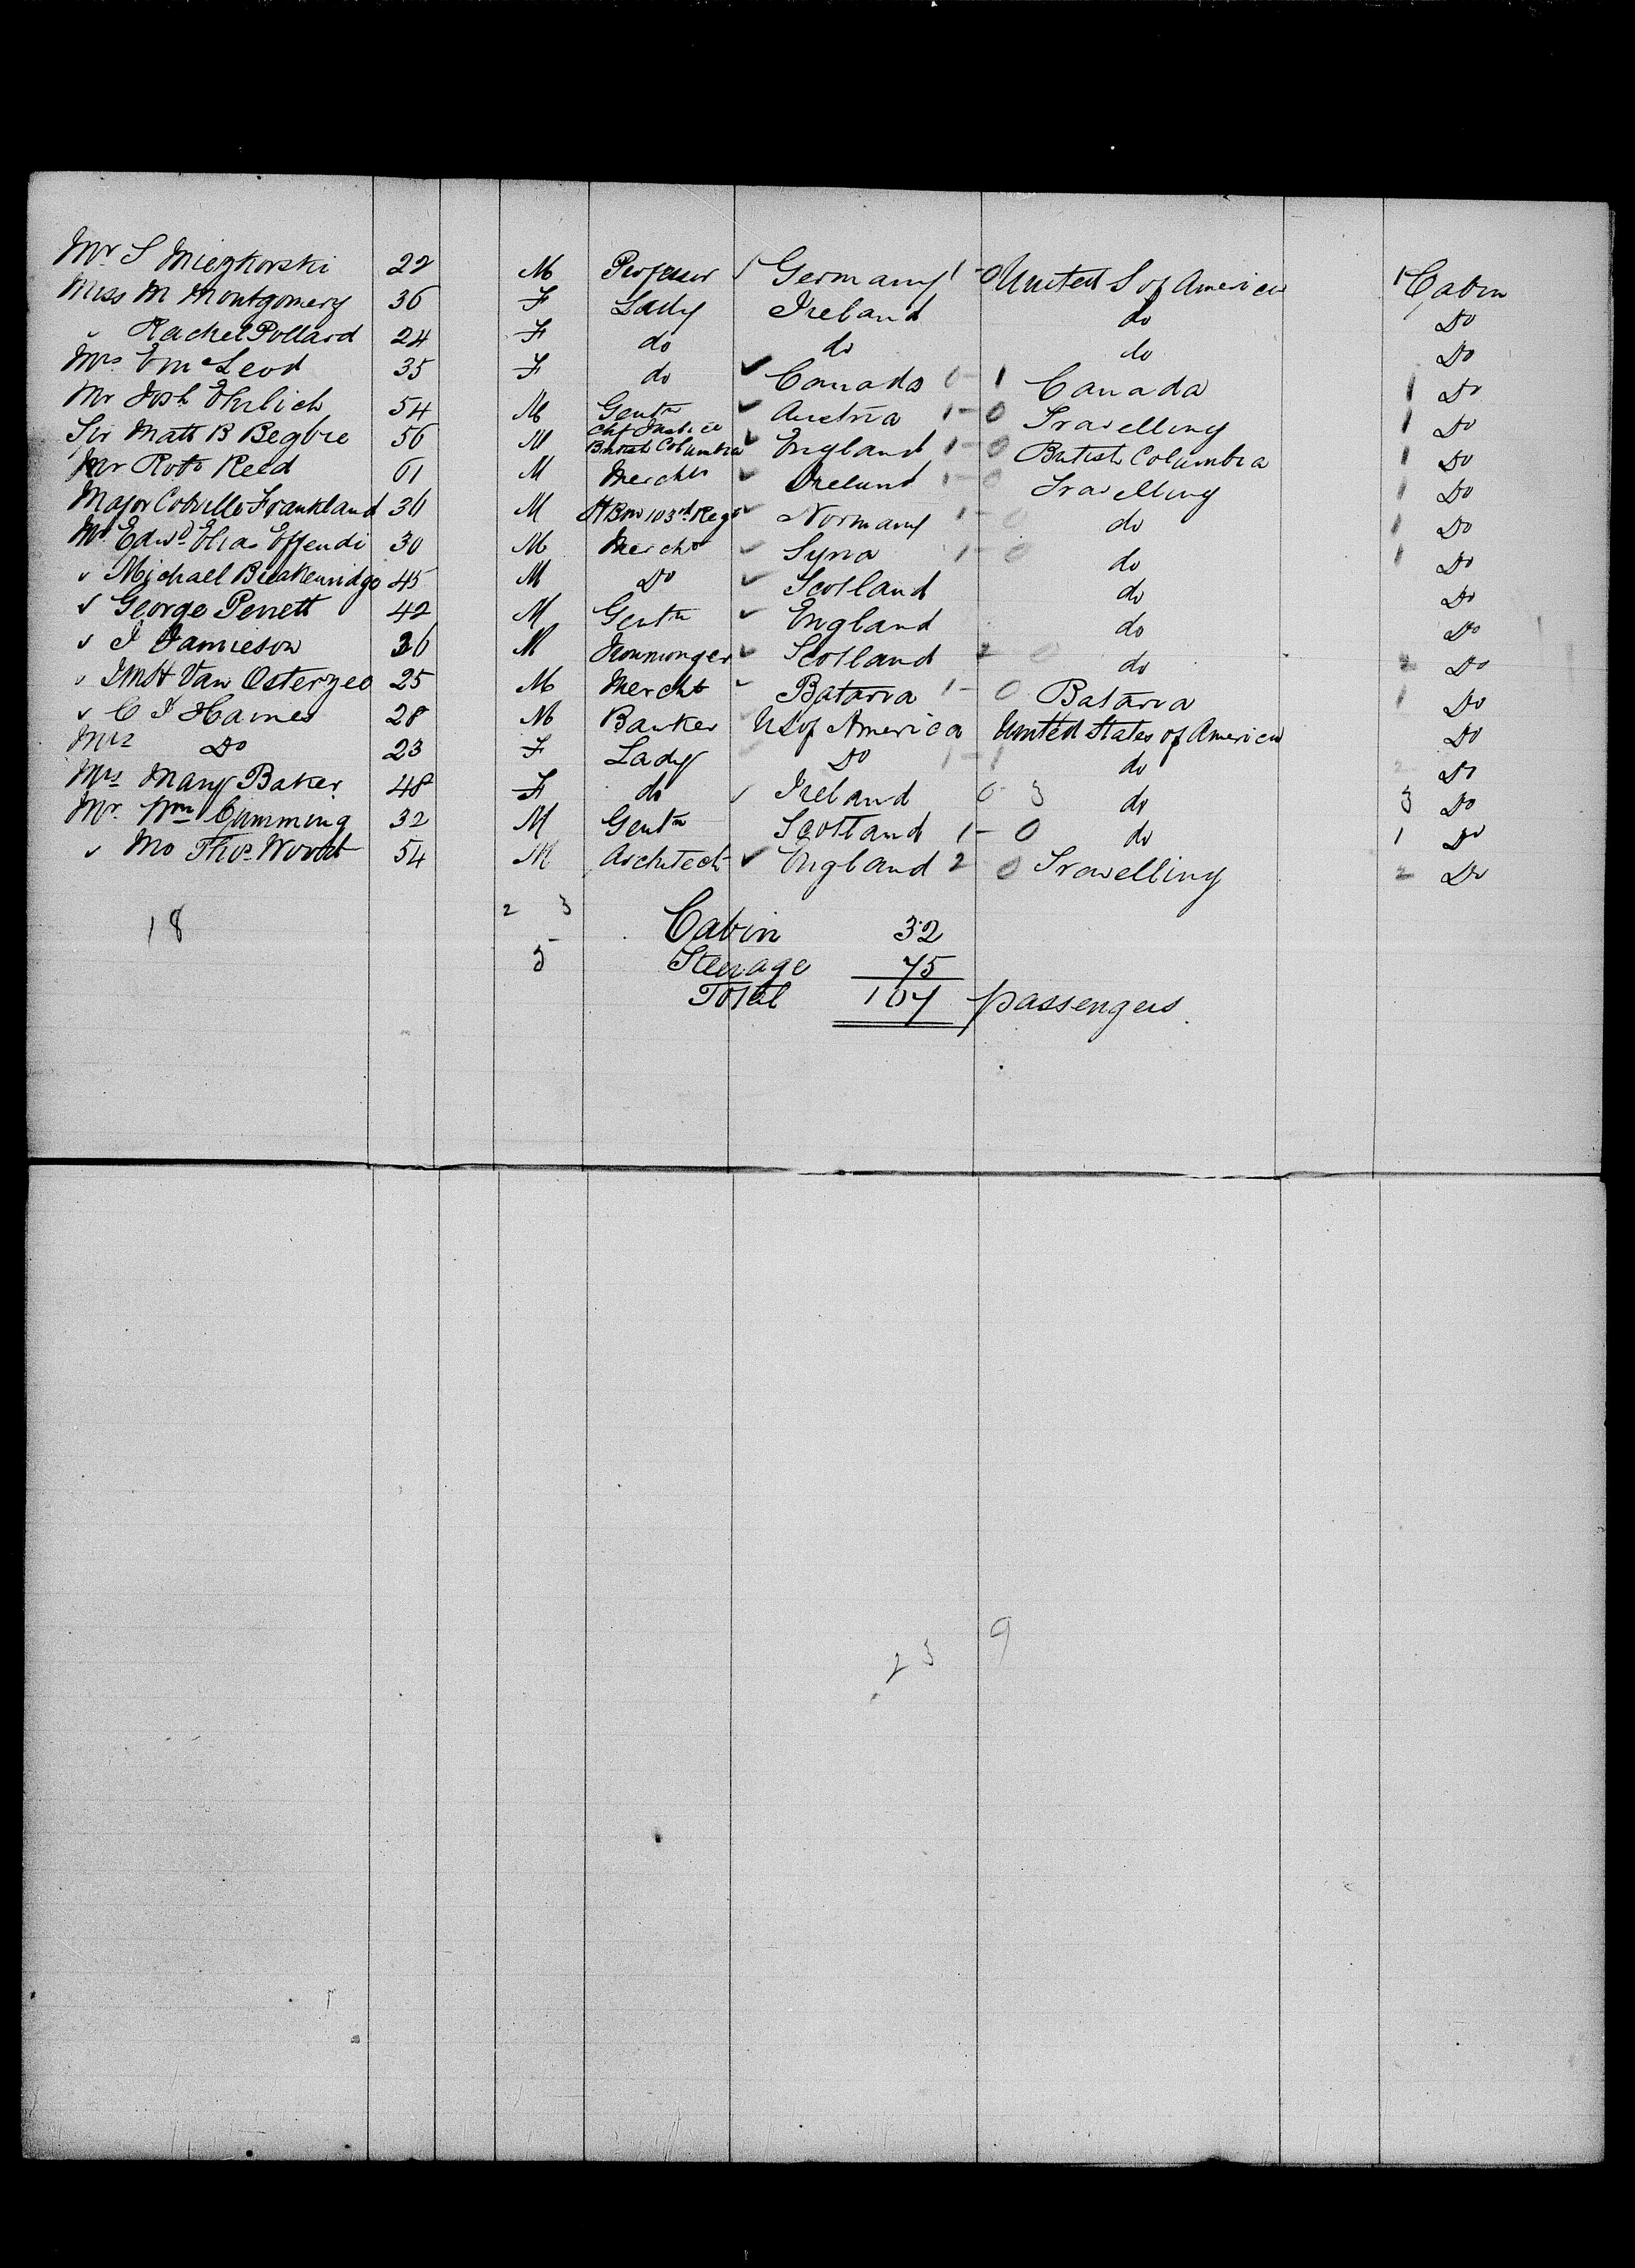 Mr S Miezkorski 22 M Professor Germany 1-0 United S of America 1 Cabin
Miss M Montgomery 36 F Lady Ireland do Do
" Rachel Pollard 24 F do do do Do
Mrs E McLeod 35 F do Canada 0-1 Canada 1 Do
Mr Josh Ehrlich 54 M Gentn Austria 1-0 Travelling 1 Do
Sir Matt B Begbie 56 M Chf Justice British Columbia England 1-0 British Columbia 1 Do
Mr Robt Reed 61 M Mercht Ireland 1-0 Travelling 1 Do
Major Colville Frankland 36 M HBM 103rd Regt Normany 1-0 do 1 Do
Mr Edwd Elias Effendi 30 M Mercht Syria 1-0 do 1 Do
" Michael Breakenridge 45 M Do Scotland do Do
" George Perrett 42 M Gentn England do Do
" J Jamieson 36 M Ironmonger Scotland 2 0 do 2 Do
" Van Osterzee 25 M Mercht Batavia 1-0 Batavia 1 Do
" C J Haines 28 M Banker US of America United States of America Do
Mrs Do 23 F Lady Do 1-1 do 2 Do
Mrs Mary Baker 48 F do Ireland 0 3 do 3 Do
Mr. Wm Cumming 32 M Gentn Scotland 1-0 do 1 Do
" Thos Wood 54 M Architect England 2 0 Travelling 2 Do
18 2 3 Cabin 32
5 Steerage 75
Total 107 passengers.
9
23